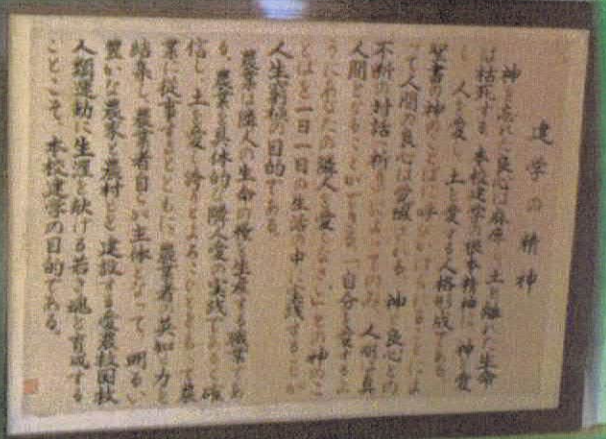 建学の精神
神を忘れた良心は麻痺し土を離れた生命
は枯死する。本校建学の根本精神は、神を愛
し、人を愛し、土を愛する人格形成である。
聖書の神のことばに呼びかけられることによ
って人間の良心は覚醒される。神と良心との
不断の対話と祈りによってのみ、人間は真
人間となることができる。「自分を愛するよ
うにあなたの隣人を愛しなさい」との神のこ
とばを一日一日の生活の中に実践することが
人生究極の目的である。
農業は隣人の生命の糧を生産する職業であ
る。農業を具体的な隣人愛の実践であると確
信し、土を愛し誇りとよろこびをもって農
業に従事するとともに、農業者の英知と力を
結集し、農業者自らが主体となって、明るい
豊かな農家と農村とを建設する愛農救国救
人類運動に生涯を献げる若き魂を育成する
ことこそ、本校建学の目的である。